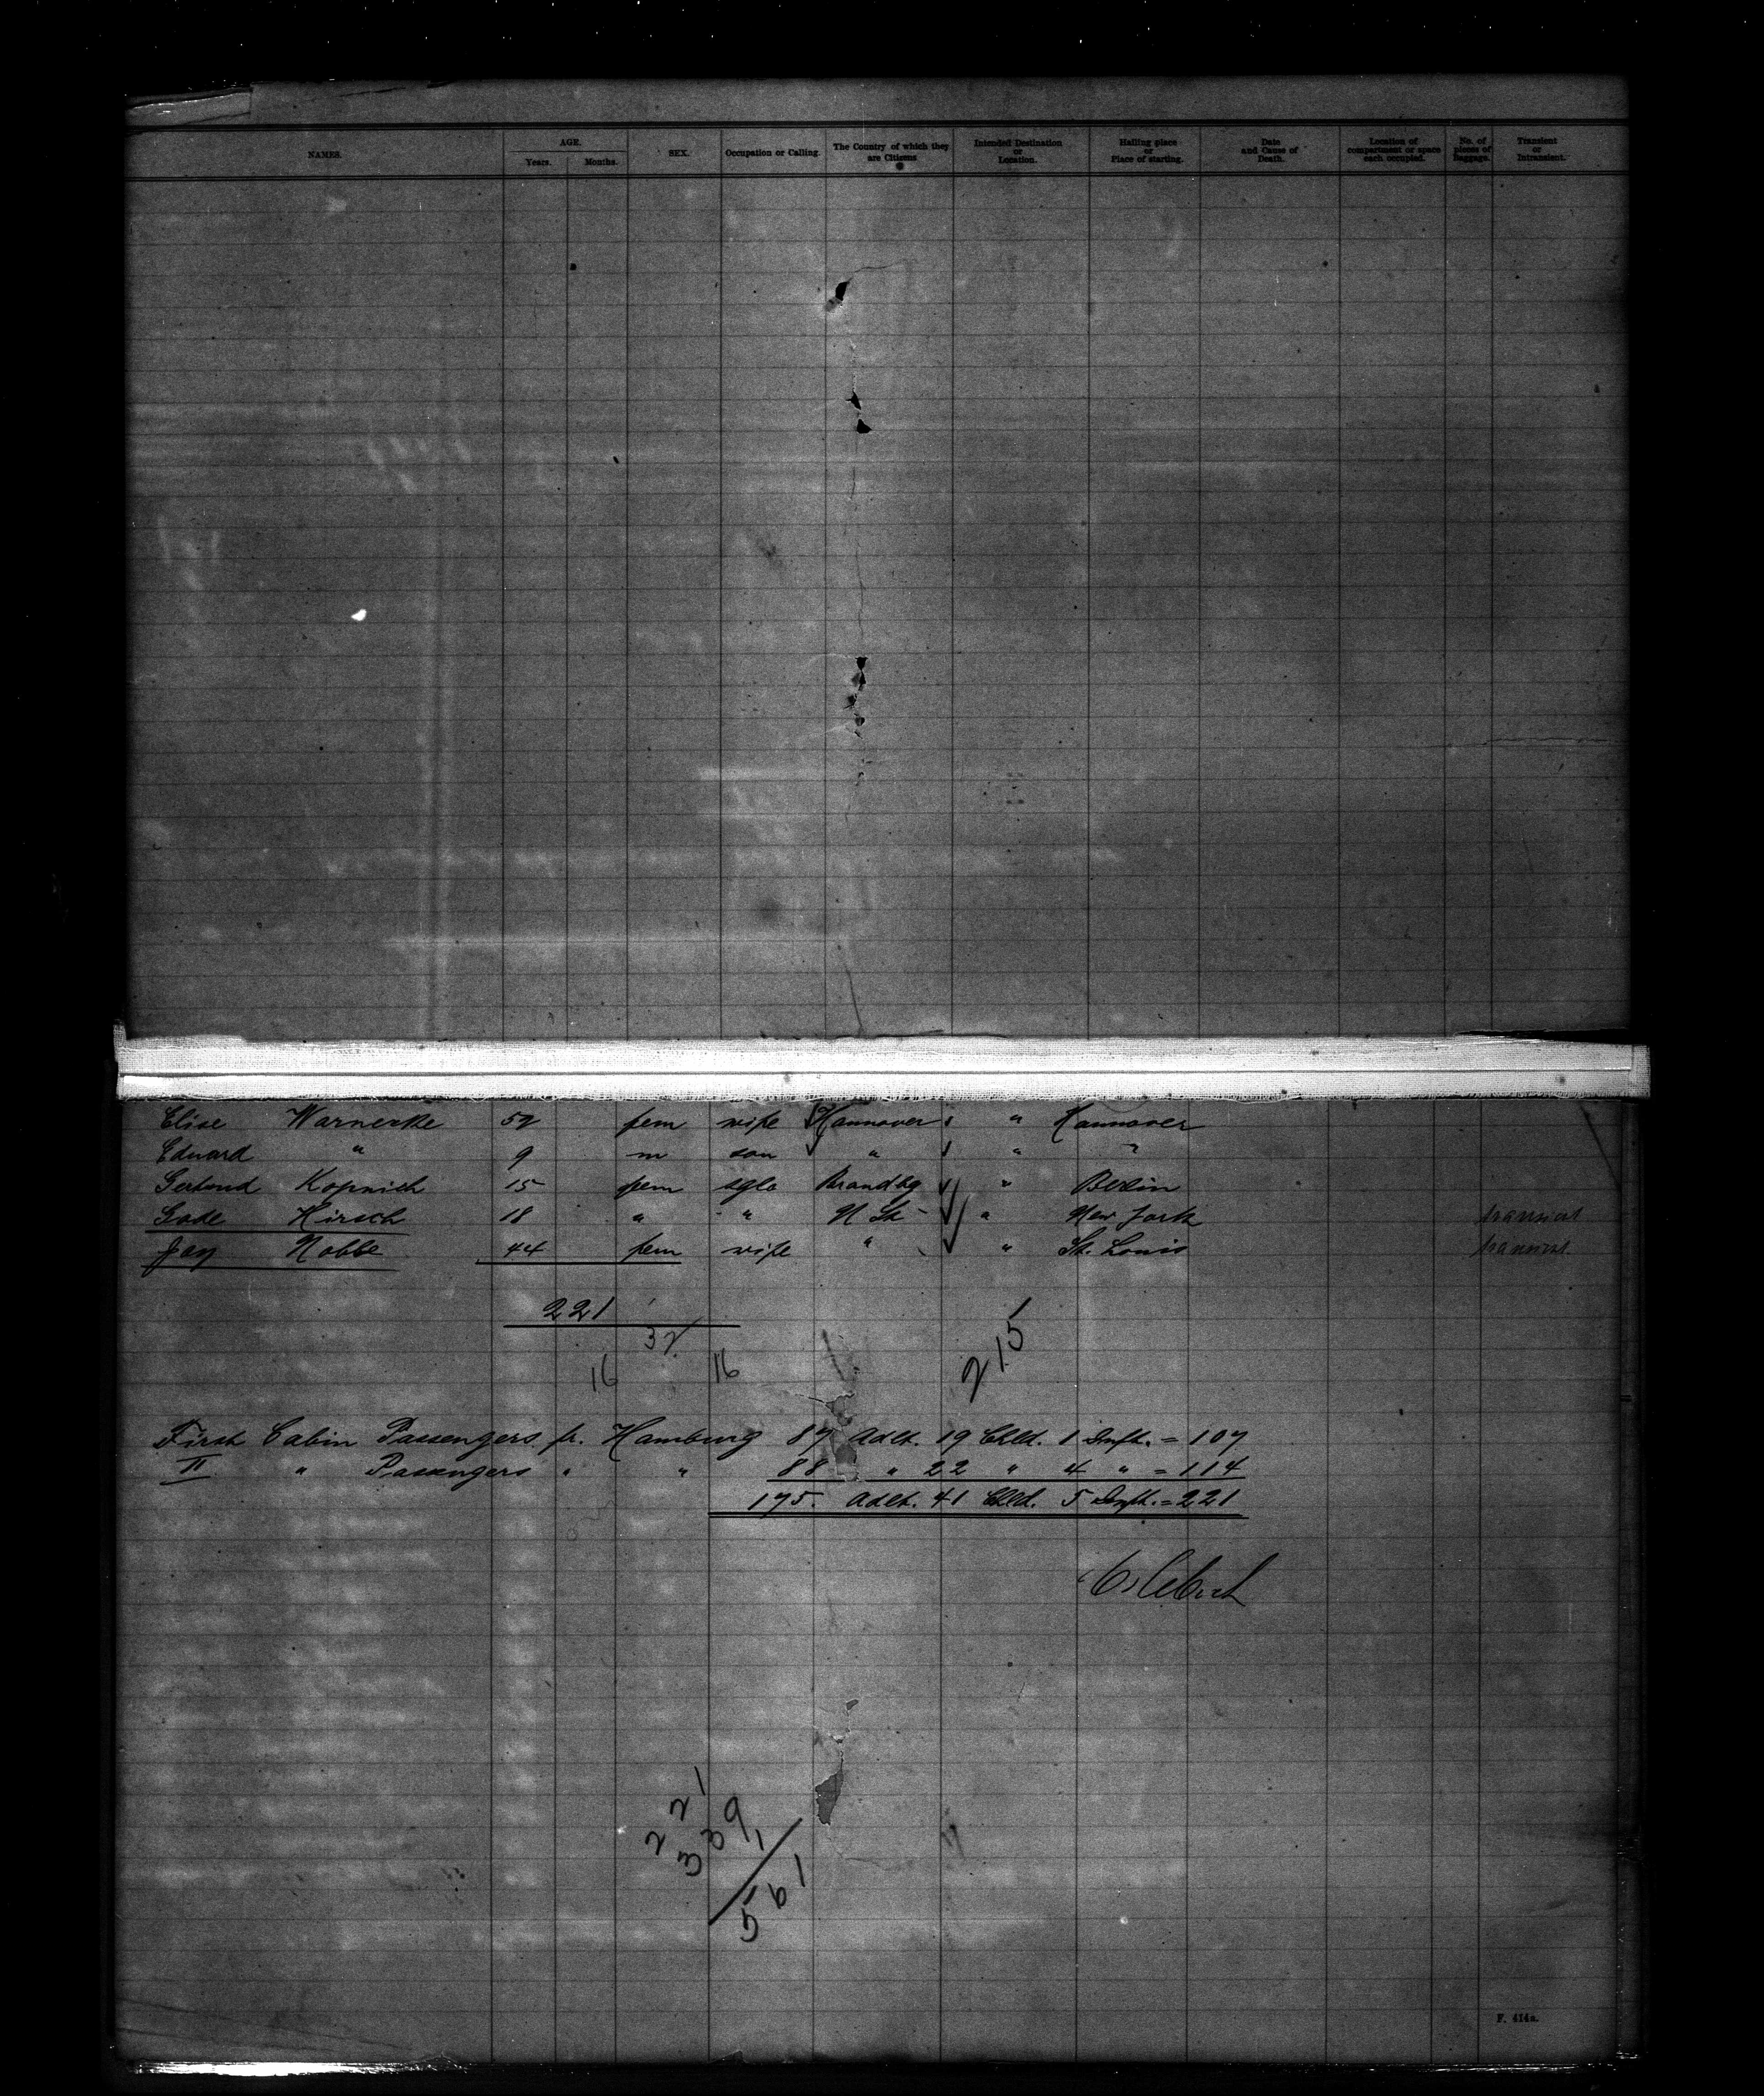 NAMES. AGE. Years. Months. SEX. Occupation or Calling. The Country of which they are Citizens Intended Destination or Location. Hailing place or Place of starting. Date and Cause of Death. Location of compartment or space each occupied. No. of pieces of Baggage. Transient or Intransient.
Elise Warnecke 52 fem wife Hannover " Hannover
Eduard " 9 m son " " "
Gertrud Kopnich 15 fem sglo Brandbg " Berlin
Hirsch 18 " " N St " New York transient
Nobbe 44 fem wife " " St. Louis transient
221
32
16 16
215
First Cabin Passengers fr. Hamburg 87 Adlt. 19 Chld. 1 Inft. = 107
II " Passengers " " 88 " 22 " 4 " = 114
175. Adlt. 41 Chld. 5 Inft. = 221
221
339
1
561
F. 414a.